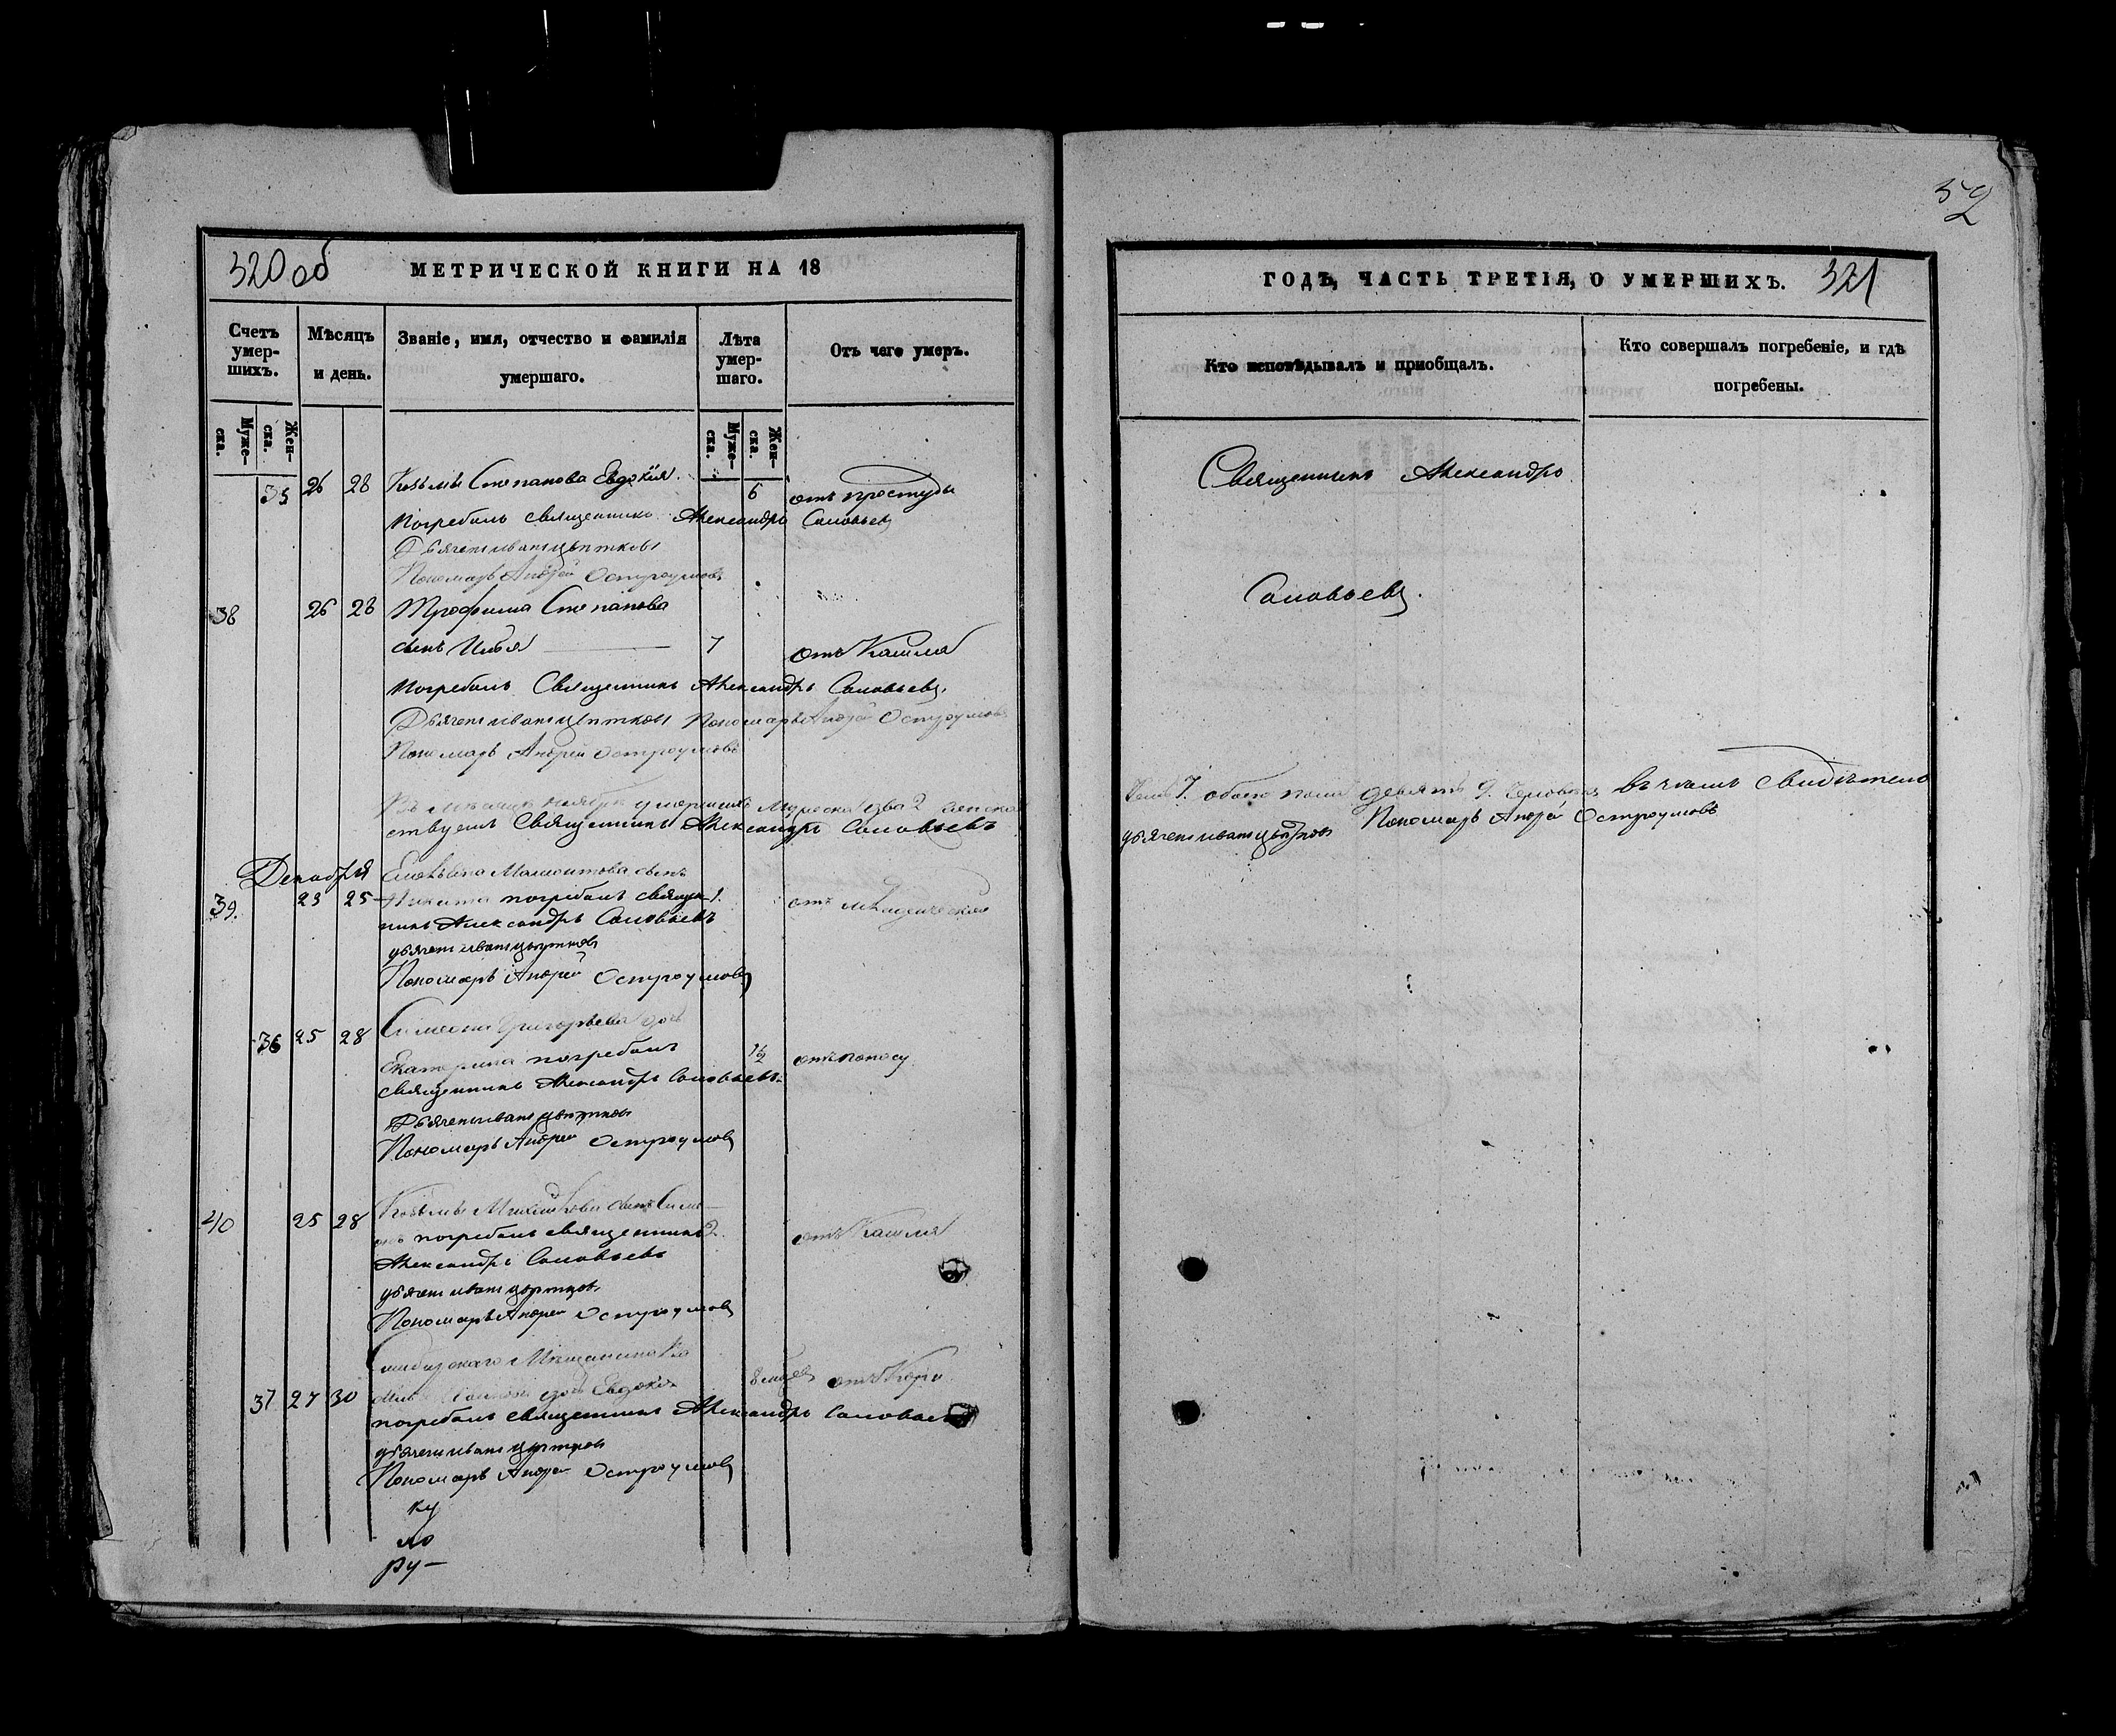 320 об
МЕТРИЧЕСКОЙ КНИГИ НА 18
Счетъ умер-шихъ.
Мѣсяцъ и день.
Званіе, имя, отчество и фамилія умершаго.
Лѣта умер-шаго.
Отъ чего умеръ.
Муже-ска.
Жен-ска.
Муже-ска.
Жен-ска.
35 26 28 Козьмы Степанова Евдокія. 6 отъ простуды
Погребалъ священникъ Александръ Соловьевъ
Дьячекъ Иванъ Цвѣтковъ
Пономарь Андрей Остроумовъ
38 26 28 Трофима Степанова
сынъ Илья 7 отъ Кашля
Погребалъ Священникъ Александръ Соловьевъ.
Дьячекъ Иванъ Цвѣтковъ Пономарь Андрей Остроумовъ
Пономарь Андрей Остроумовъ
Въ мѣсяцѣ ноябрѣ умершихъ Мужеска 2 женска
ствуемъ Священникъ Александръ Соловьевъ
Декабря
сынъ
39. 23 25 Никита погребалъ священ- 1. отъ
никъ Александръ Соловьевъ
дьячекъ Иванъ Цвѣтковъ
Пономарь Андрей Остроумовъ
36 25 28 Симеона Григорьева дочь
Екатерина погребалъ 1½ отъ поносу
священникъ Александръ Соловьевъ.
Дьячекъ Иванъ Цвѣтковъ
Пономарь Андрей Остроумовъ
40 25 28 Козьмы сынъ Симе-
онъ погребалъ священникъ 2. отъ Кашля
Александръ Соловьевъ
дьячекъ Иванъ Цвѣтковъ
Пономарь Андрей Остроумовъ
Симбирскаго Мѣщанина Ко
37 27 30 дочь Евдокія 8 отъ Кори
погребалъ священникъ Александръ Соловьевъ
дьячекъ Иванъ Цвѣтковъ
Пономарь Андрей Остроумовъ
ку
ло
ру-
52
ГОДЪ, ЧАСТЬ ТРЕТІЯ, О УМЕРШИХЪ.
321
Кто исповѣдывалъ и приобщалъ.
Кто совершалъ погребеніе, и гдѣ погребены.
Священникъ Александръ
Соловьевъ.
7. обоего пола девять 9. Человѣкъ въ чемъ свидѣтель
дьячекъ Иванъ Цвѣтковъ Пономарь Андрей Остроумовъ